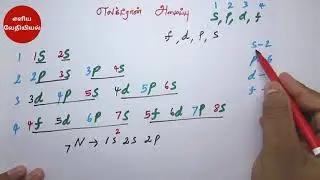 எளிய
வேதியியல்
எலக்ட்ரான் அமைப்பு
1 2 3 4
S, P, d, f
f, d, P, S
1 1S 2S
2 2P 3S 3P 4S
3 3d 4P 5S 4d 5P 6S
4 4f 5d 6P 7S 5f 6d 7P 8S
₇N → 1S² 2S 2P
S-2
P-6
d-
f-